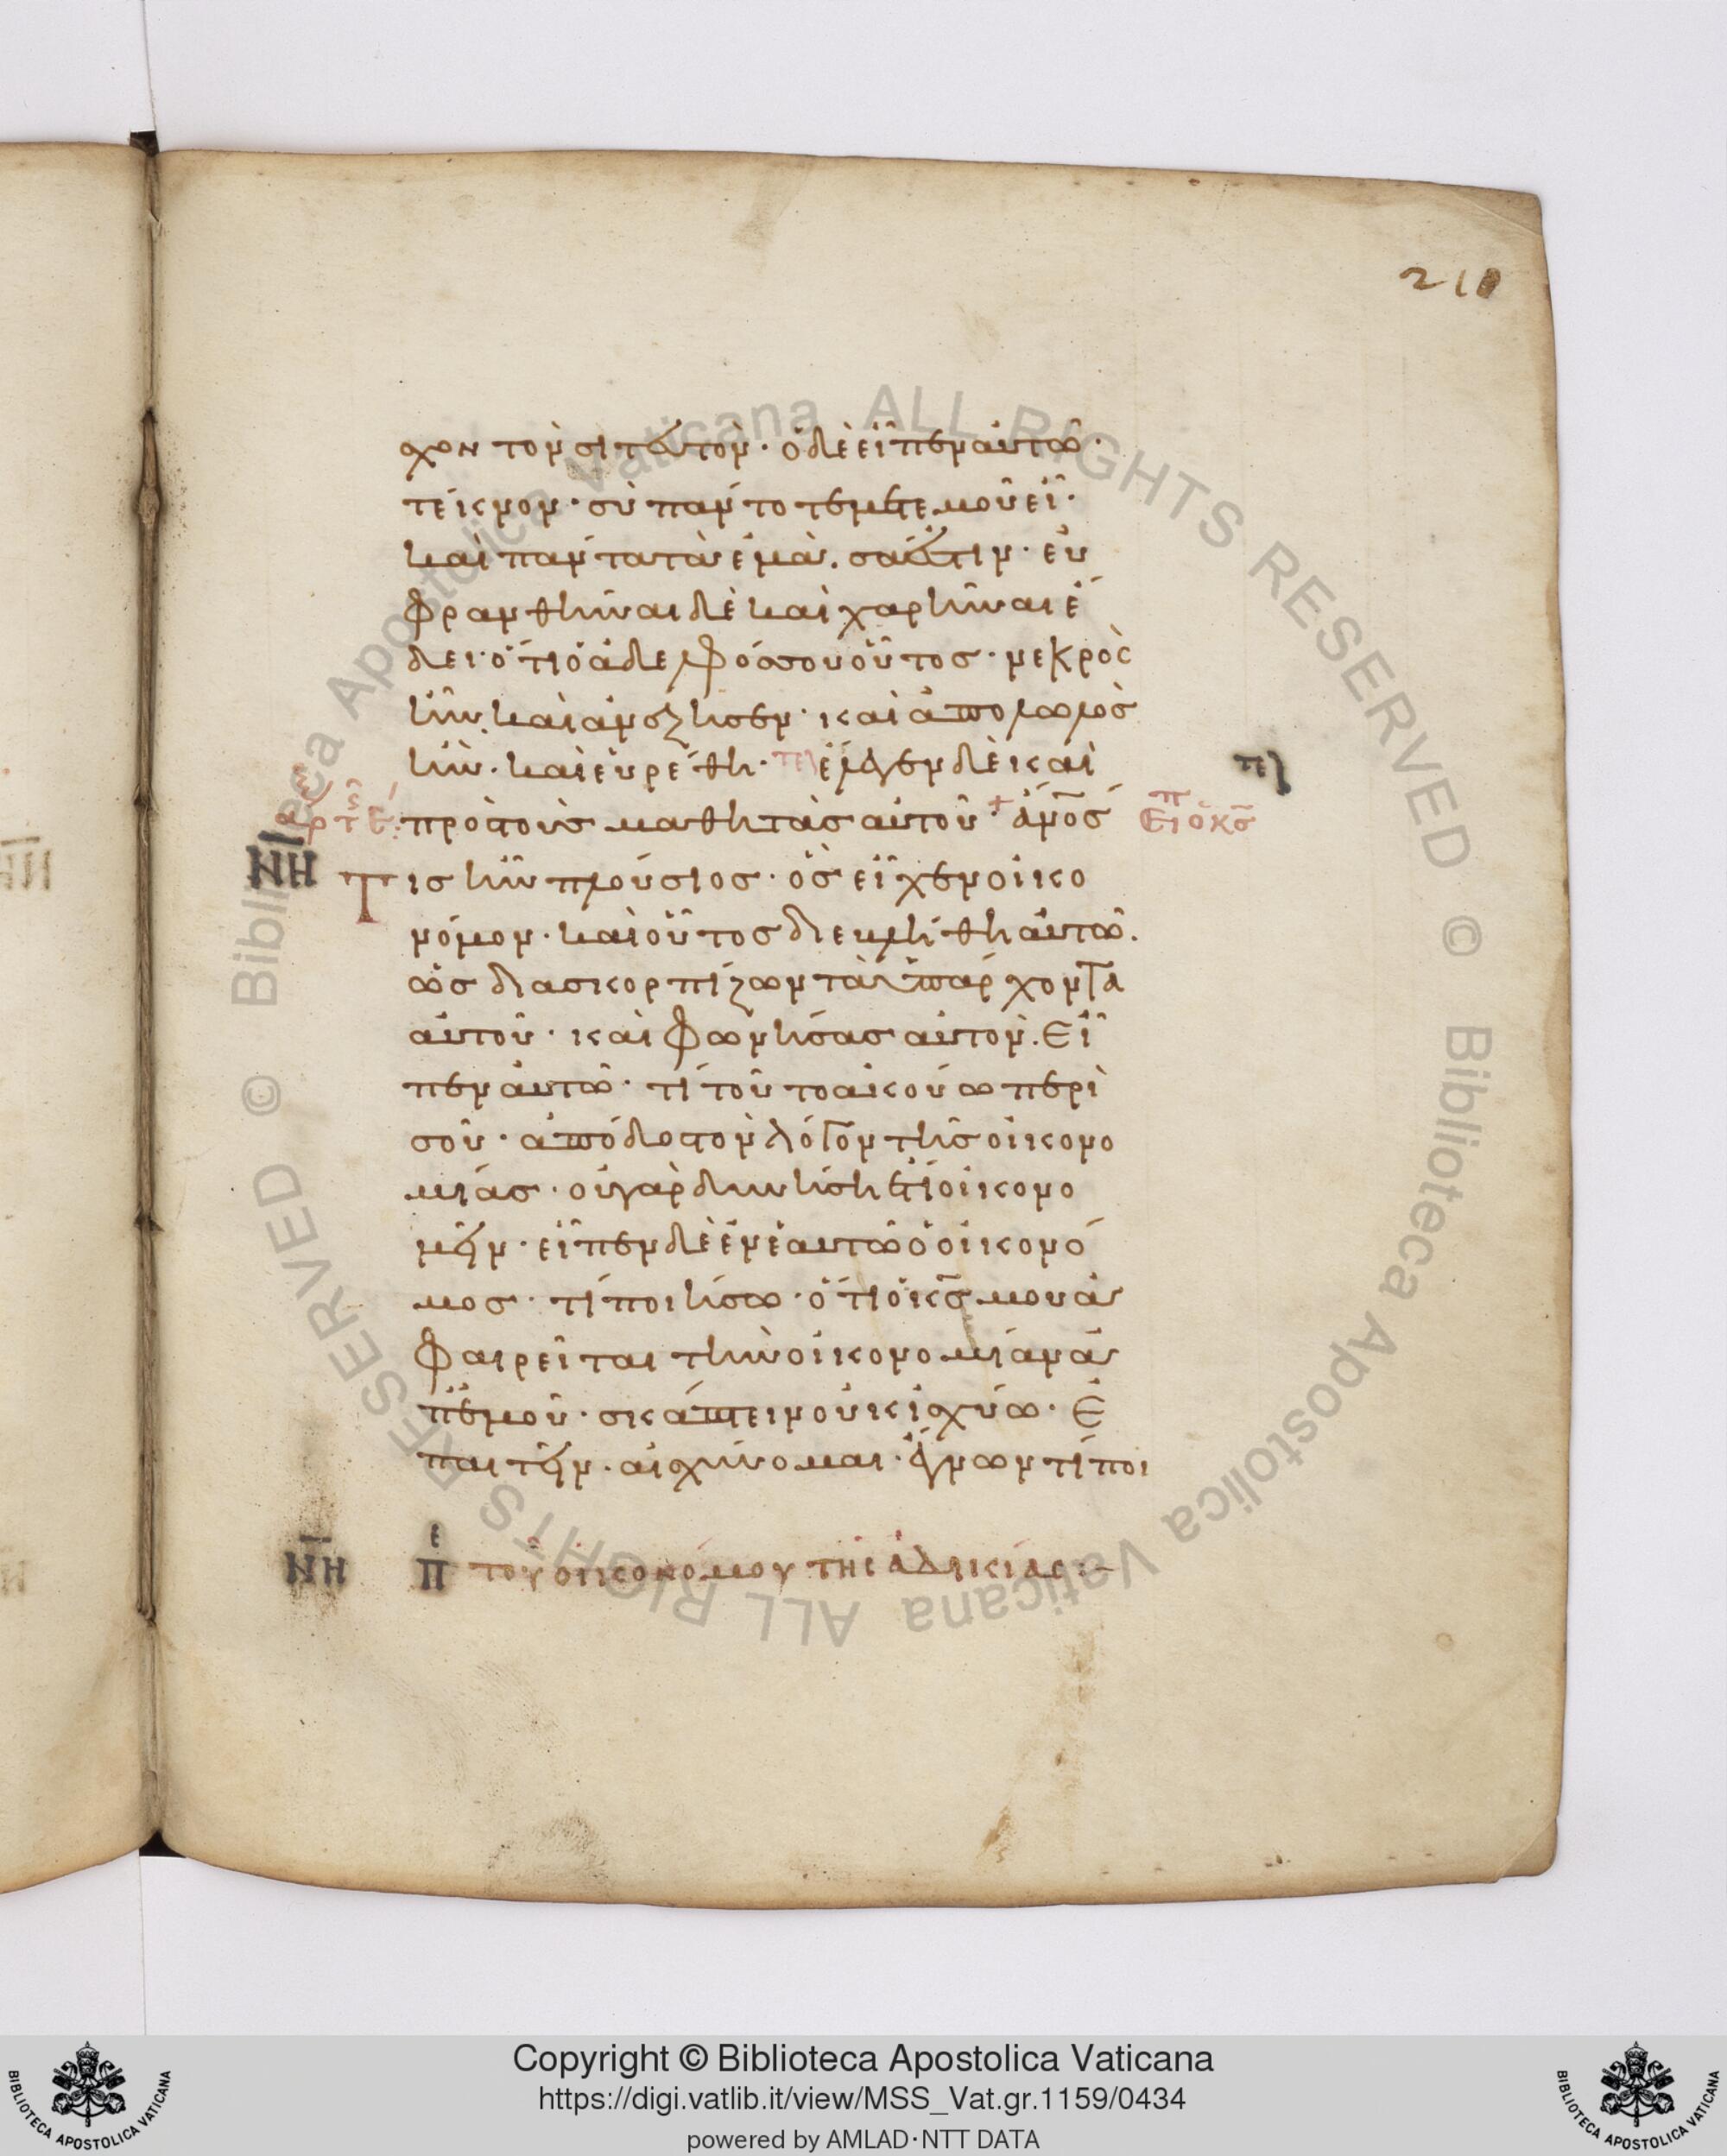 210
χον τὸν σιτευτόν· ὁ δὲ εἶπεν αὐτῶ·
τέκνον· σὺ πάντοτε μετ' ἐμοῦ εἶ·
καὶ πάντα τὰ ἐμὰ. σά ἐστιν· εὐ
φρανθῆναι δὲ καὶ χαρῆναι ἔ
δει· ὅτι ὁ ἀδελφός σου οὗτος· νεκρὸς
ἦν. καὶ ἀνέζησεν· καὶ ἀπολωλὸς
ἦν· καὶ εὑρέθη· τελ ἔλεγεν δὲ καὶ
πρὸς τοὺς μαθητὰς αὐτοῦ· + ἄν̅ο̅ς Εἶπ ὁ κ̅ς̅
ΝΗ Τις ἦν πλούσιος· ὃς εἶχεν οἰκο
νόμον· καὶ οὗτος διεβλήθη αὐτῶ.
ὡς διασκορπίζων τὰ ὑπάρχοντα
αὐτοῦ· καὶ φωνήσας αὐτὸν. εἶ
πεν αὐτῶ· τί τοῦτο ἀκούω περὶ
σοῦ· ἀπόδος τὸν λόγον τῆς οἰκονο
μίας· οὐ γὰρ δυνήση ἔτι οἰκονο
μεῖν· εἶπεν δὲ ἐν ἑαυτῶ ὁ οἰκονό
μος· τί ποιήσω· ὅτι ὁ κ̅ς̅ μου ἀ
φαιρεῖται τὴν οἰκονομίαν ἀ
π' ἐμοῦ· σκάπτειν οὐκ ἰσχύω· ἐ
παιτεῖν· αἰσχύνομαι· ἔγνων τί ποι
ΝΗ Πε τοῦ οἰκονόμου τῆς ἀδικίας:–
Copyright © Biblioteca Apostolica Vaticana
https://digi.vatlib.it/view/MSS_Vat.gr.1159/0434
powered by AMLAD·NTT DATA
BIBLIOTECA APOSTOLICA VATICANA
BIBLIOTECA APOSTOLICA VATICANA
© Biblioteca Apostolica Vaticana ALL RIGHTS RESERVED © Biblioteca Apostolica Vaticana ALL RIGHTS RESERVED